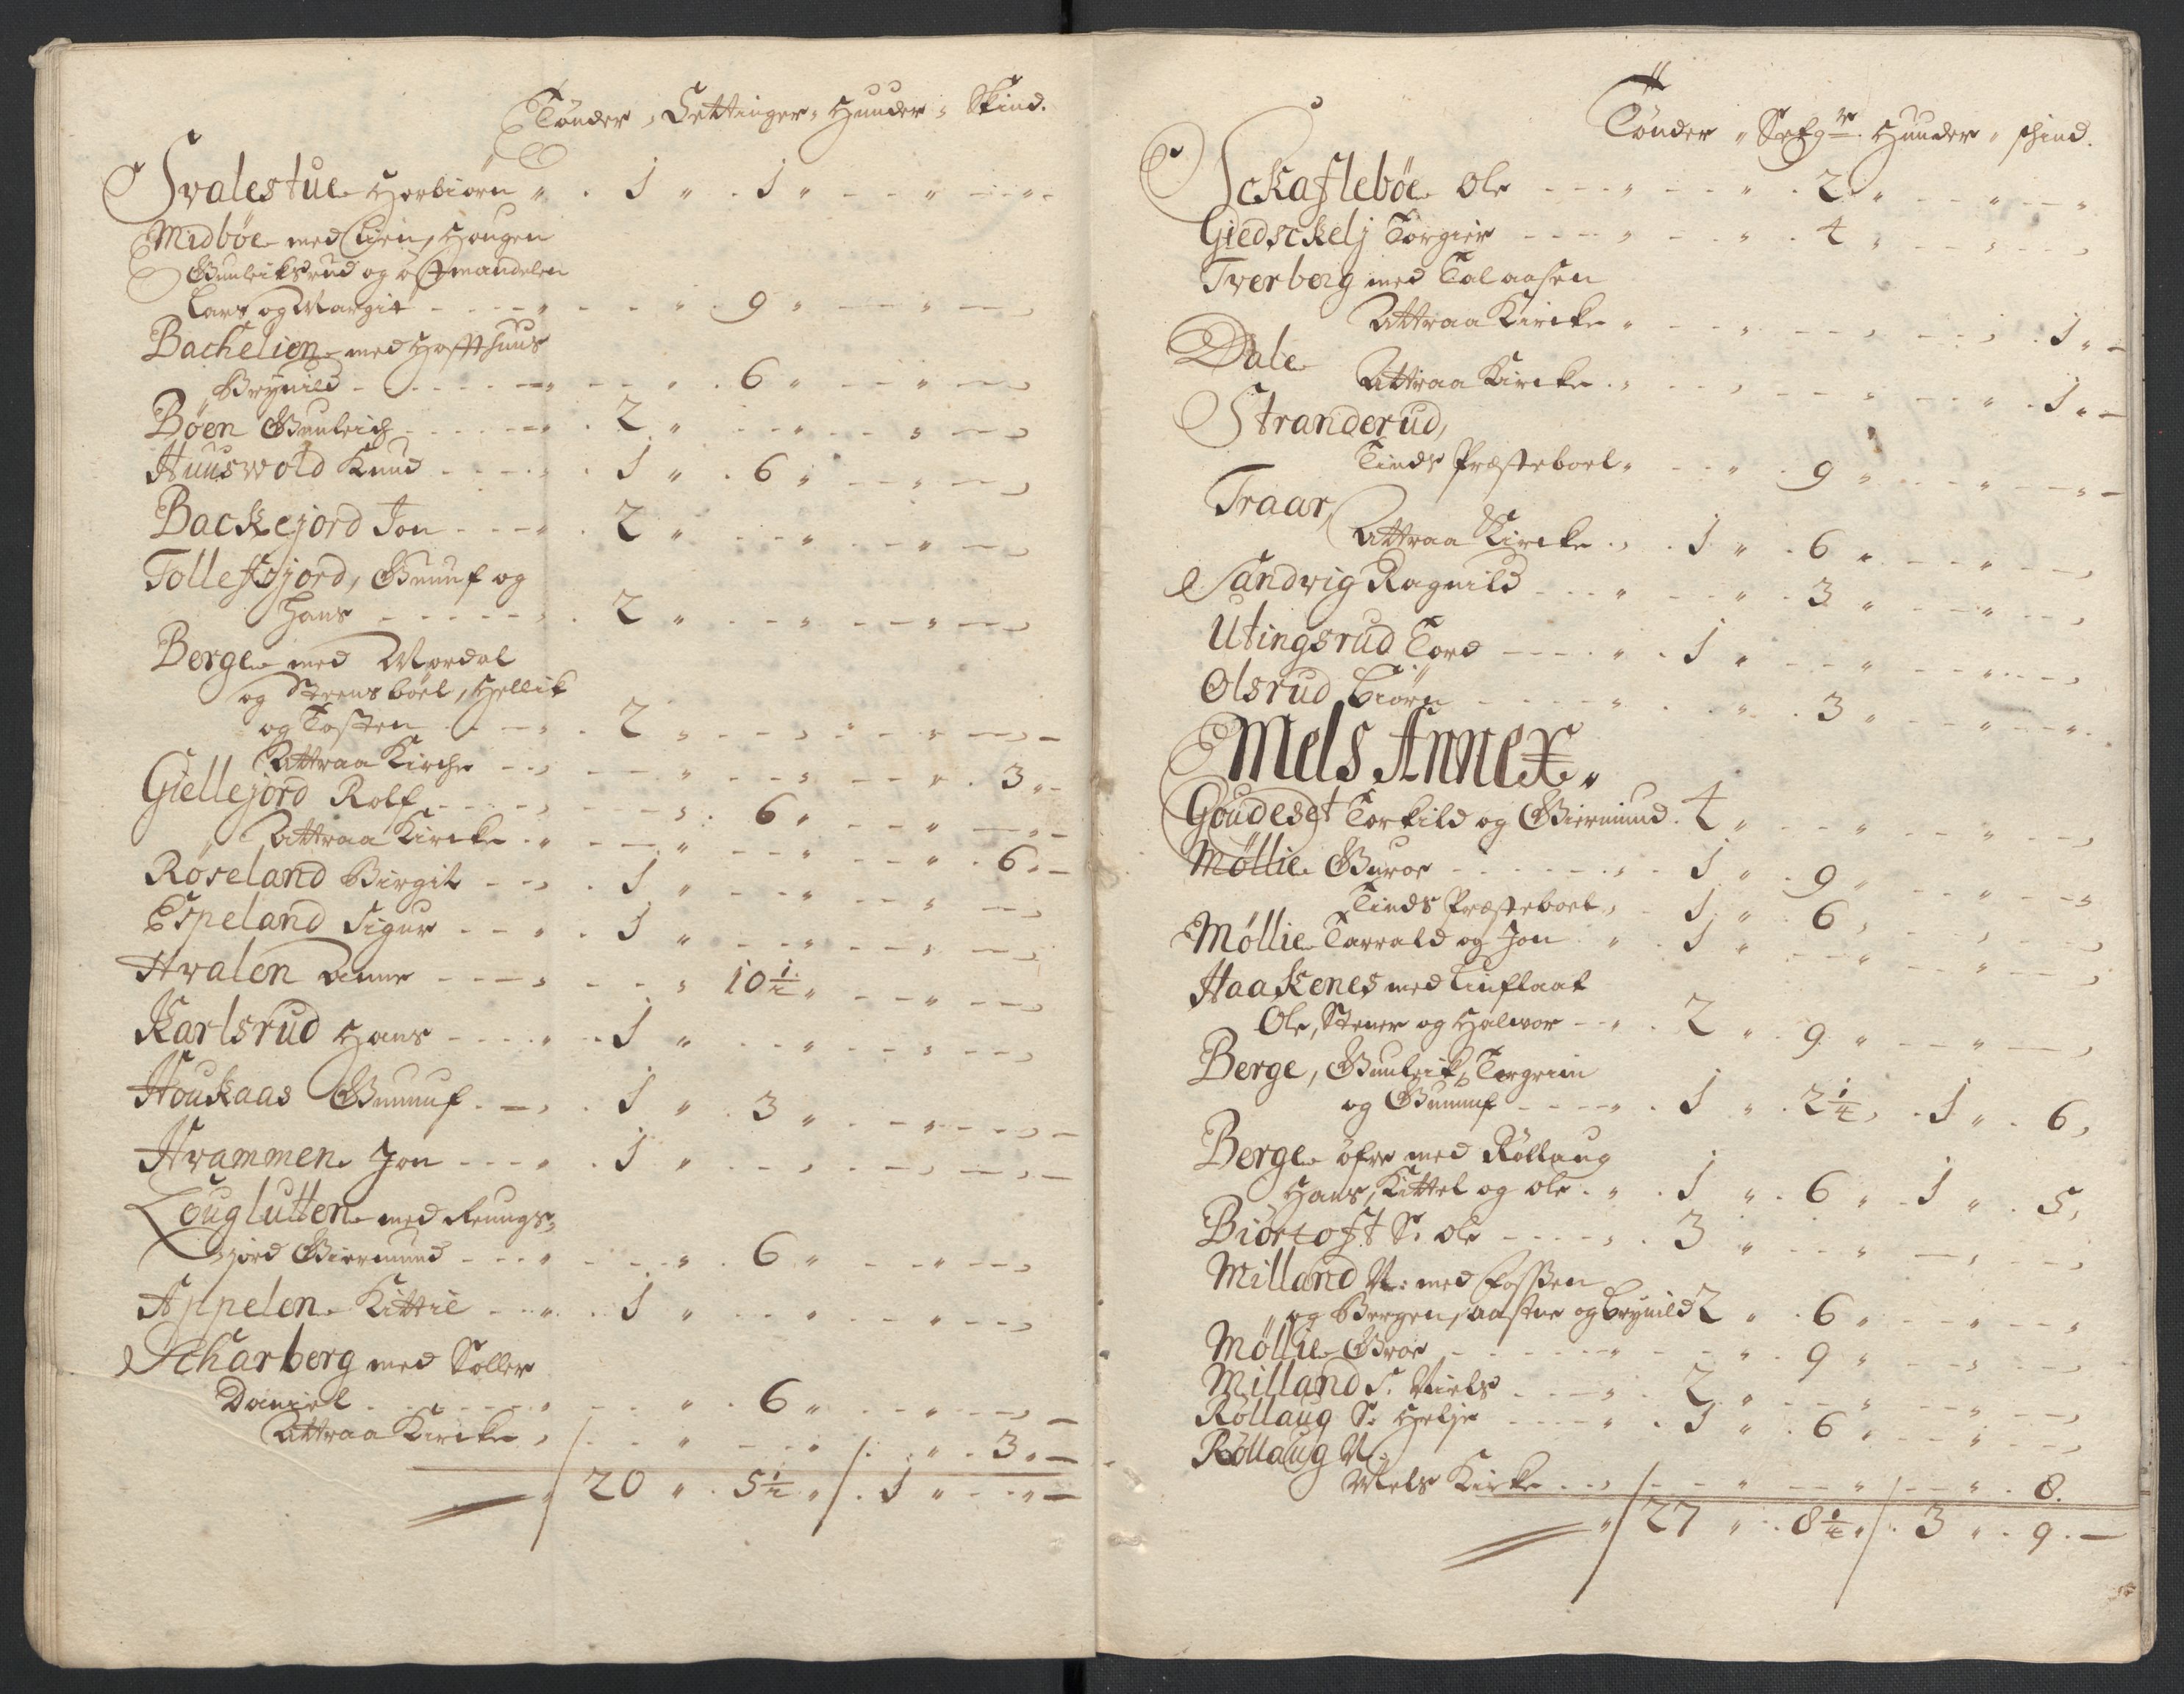 Tönder " Settinger " Huuder " Skind.
Svalestue Herbiörn " . 1 " . 1 " - - " - - " -
Midböe med Lien, Hougen
Gunleiksrud og Östmandelen
Lars og Margit - - - " - - " . 9 " - - " - -
Bachelien med Hofsthuus
Brynild - - - - - " - - " . 6 " - - " - -
Böen Gunleich - - - - " . 2 " - - " - - " - -
Huuswold Knud - - - - " . 1 " . 6 " - - " - -
Backejord Jon - - - " . 2 " - - " - - " - -
Tollefsjord, Gunuf og
Hans - - - - - " . 2 " - - " - - " - -
Berge med Mordal
og Steensböel, Hellik
og Tosten - - - " . 2 " - - " - - " - - " -
Attraa Kirche - - " - - " - - " - - " . 3 " -
Giellejord Rolf - - - - " - - " . 6 " - - " - - " -
Attraa Kircke . " - - " - - " - - " . 6 " -
Röseland Birgit - - " . 1 " - - " - - " - -
Espeland Sigur - - - " . 1 " - - " - - " - -
Hvalen Anne - - - - " - - " 10 1/2 " - - " - -
Karlsrud Hans - - - - " . 1 " - - " - - " - -
Houkaas Gunnuf . - - " . 1 " . 3 " - - " - - " -
Hvammen Jon - - - " . 1 " - - " - - " - - " -
Louglutten med Reungs-
jord Giermund - - - " - - " . 6 " - - " - -
Appelen Kittil - - " . 1 " - - " - - " - -
Scharberg med Soller
Daniel - - - - - " - - " . 6 " - - " - - " -
Attraa Kircke " - - " - - " - - " . 3 " -
" 20 " . 5 1/2 " . 1 " - - " -
Tönder " Setgr. Huuder " skind.
Sckaflebøe Ole - - - " - - " . 2 " - - " - - "
Giedsckelj Torgier - - - " - - " . 4 " - - " - -
Tverberg med Talaasen
Attraa Kircke " - - " - - " - - " . 1 " -
Dale
Attraa Kircke . " - - " - - " - - " . 1 " -
Stranderud,
Tinds Præsteboel " - - " . 9 " - - " - - " -
Traar,
Attraa Kircke . " . 1 " . 6 " - - " - -
Sandvig Ragnild - - - " - - " . 3 " - - " - -
Utingsrud Tord - - - - " . 1 " - - " - - " - -
Olsrud Biörn - - - - " - - " . 3 " - - " - - "
Mels Annex.
Goudeset Torkild og Giermund . 4 " - - " - - " - -
Möllie Guroe - - - - - - " . 1 " . 9 " - - " - - "
Tinds Præsteboel " . 1 " . 6 " - - " - -
Möllie Tarrald og Jon . " . 1 " - - " - - " - -
Haakenes med Linflaat
Ole, Stener og Halvor - - " . 2 " . 9 " - - " - -
Berge, Gunleik, Torgrim
og Gunnuf - - - - " . 1 " . 2 1/4 " . 1 " . 6 "
Berge öfre med Röllaug
Hans, Kittel og Ole . " . 1 " . 6 " . 1 " . 5 "
Biörtoft S. Ole - - - - " . 3 " - - " - - " - -
Milland N: med Fossen
og Bergen, Aaste og Brynild 2 " . 6 " - - " - - "
Möllie Groe - - - - - " - - " . 9 " - - " - -
Milland S. Niels - - - " . 2 " - - " - - " - -
Röllaug S. Helje - - - - " . 1 " . 6 " - - " - -
Röllaug N.
Mels Kirke . . " - - " - - " - - " . 8.
" 27 " . 8 1/4 " . 3 " . 9 . -